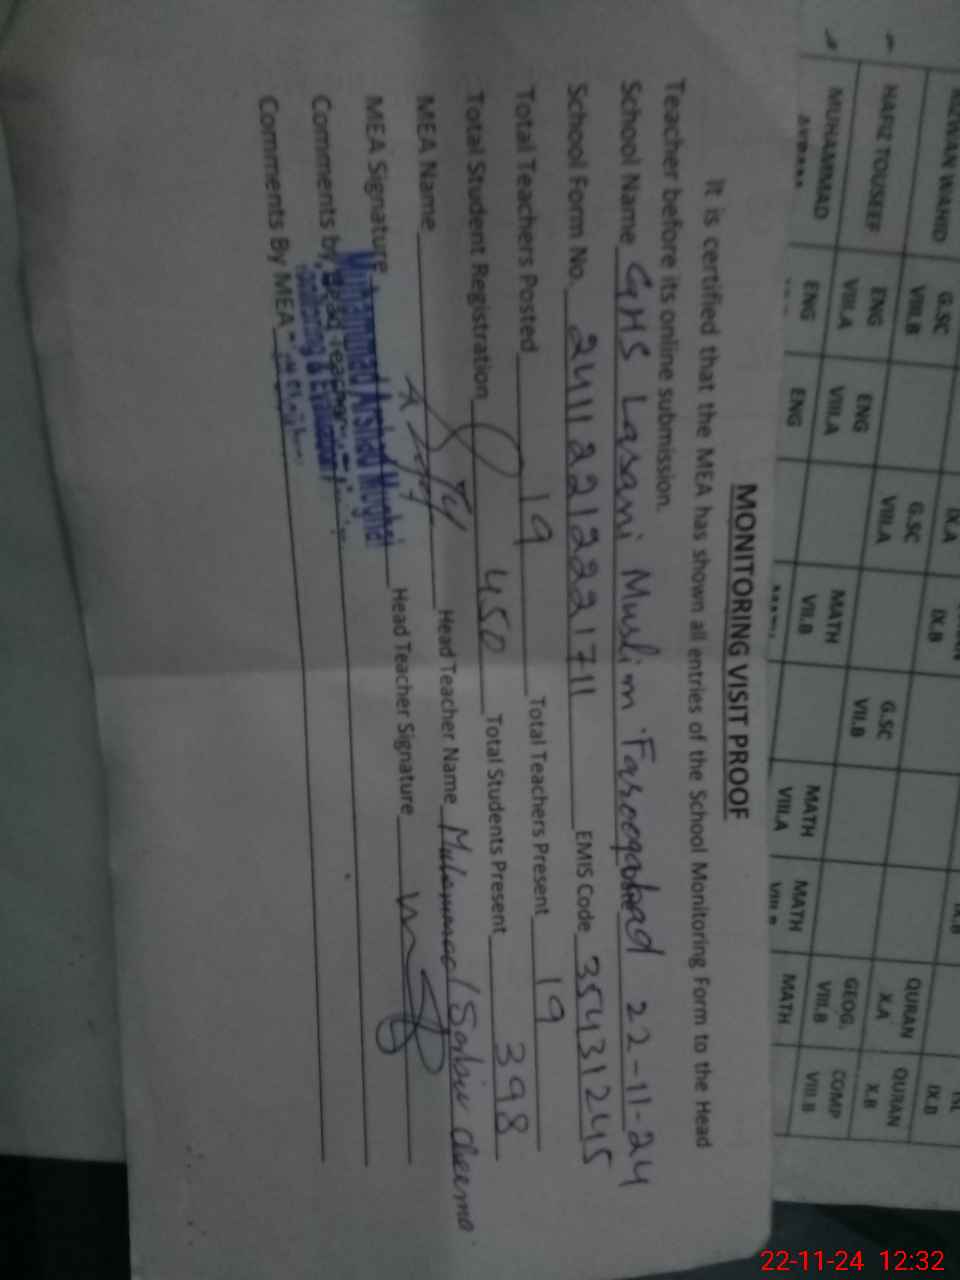 MONITORING VISIT PROOF
It is certified that the MEA has shown all entries of the School Monitoring Form to the Head
Teacher before its online submission.
School Name GHS Lasani Muslim Farooqabad 22-11-24
School Form No. 24112212221711 EMIS Code 35431245
Total Teachers Posted 19 Total Teachers Present 19
Total Student Registration 450 Total Students Present 398
MEA Name Head Teacher Name Muhammad Sabir cheema
MEA Signature Head Teacher Signature
Muhammad Arshad Mughal
Comments by Head Teacher
Monitoring & Evaluation
Comments By MEA
RIZWAN WAHID G.SC VIII.B IX.A IX.B IX.B IX.B
HAFIZ TOUSEEF ENG VIII.A ENG VIII.A G.SC VIII.A G.SC VII.B QURAN X.A QURAN X.B
MUHAMMAD ENG ENG MATH VII.B MATH VIII.A MATH VIII.B GEOG. VIII.B COMP VIII.B
MATH
22-11-24 12:32